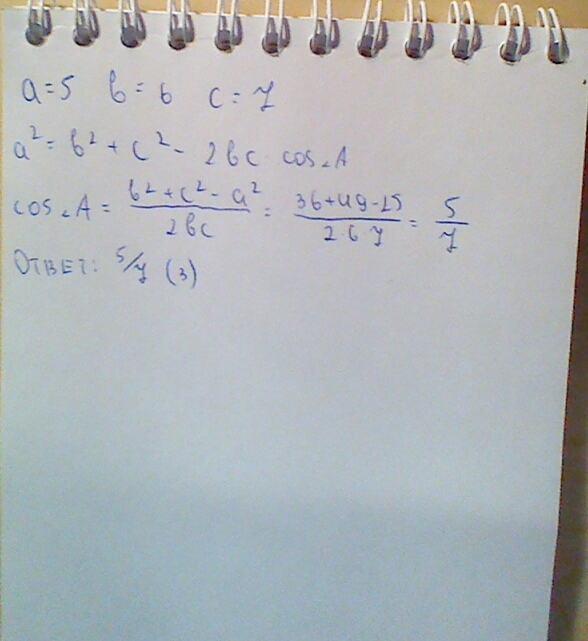 a=5 b=6 c=7
a²=b²+c²-2bc·cos∠A
cos∠A = (b²+c²-a²)/(2bc) = (36+49-25)/(2·6·7) = 5/7
ОТВЕТ: 5/7 (3)